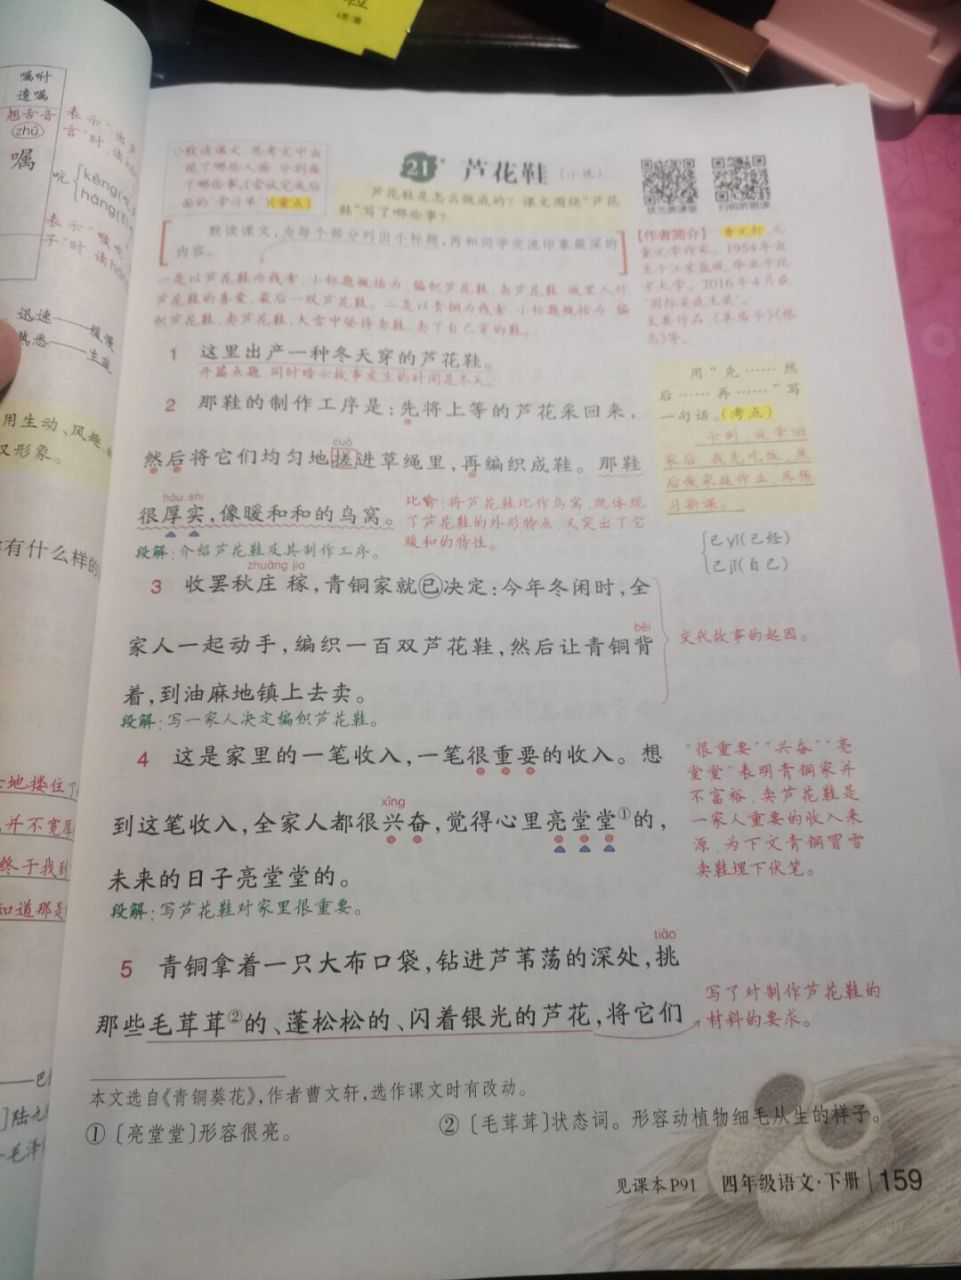 嘱咐
遗嘱
翘舌音
zhǔ
嘱
吭
kēng
háng
迅速——缓慢
熟悉——生疏
用生动、风趣
汉形象。
有什么样的
地搂住了
终于找到
知道那是
◇默读课文,思考文中出
现了哪些人物,分别做
了哪些事。(尝试完成后
面的“学习单”)(重点)
21* 芦花鞋(小说)
芦花鞋是怎么做成的?课文围绕“芦花
鞋”写了哪些事?
状元微课堂
扫码听朗读
默读课文,为每个部分列出小标题,再和同学交流印象最深的
内容。
一是以芦花鞋为线索,小标题概括为:编织芦花鞋、卖芦花鞋、城里人对
芦花鞋的喜爱、最后一双芦花鞋。二是以青铜为线索,小标题概括为:编
织芦花鞋、卖芦花鞋、大雪中坚持卖鞋、卖了自己穿的鞋。
【作者简介】曹文轩,儿
童文学作家。1954年出
生于江苏盐城,毕业于北
京大学。2016年4月获
“国际安徒生奖”。
主要作品:《草房子》《根
鸟》等。
1 这里出产一种冬天穿的芦花鞋。
开篇点题,同时暗示故事发生的时间是冬天。
2 那鞋的制作工序是:先将上等的芦花采回来,
cuō
然后将它们均匀地搓进草绳里,再编织成鞋。那鞋
hòu shi
很厚实,像暖和和的鸟窝。
比喻:将芦花鞋比作鸟窝,既体现
了芦花鞋的外形特点,又突出了它
暖和的特性。
段解:介绍芦花鞋及其制作工序。
用“先……然
后……再……”写
一句话。(考点)
示例:放学回
家后,我先吃饭,然
后做家庭作业,再预
习新课。
已yǐ(已经)
己jǐ(自己)
zhuāng jia
3 收罢秋庄 稼,青铜家就已决定:今年冬闲时,全
bēi
家人一起动手,编织一百双芦花鞋,然后让青铜背
着,到油麻地镇上去卖。
交代故事的起因。
段解:写一家人决定编织芦花鞋。
4 这是家里的一笔收入,一笔很重要的收入。想
xīng
到这笔收入,全家人都很兴奋,觉得心里亮堂堂①的,
未来的日子亮堂堂的。
段解:写芦花鞋对家里很重要。
“很重要”“兴奋”“亮
堂堂”表明青铜家并
不富裕,卖芦花鞋是
一家人重要的收入来
源,为下文青铜冒雪
卖鞋埋下伏笔。
tiāo
5 青铜拿着一只大布口袋,钻进芦苇荡的深处,挑
那些毛茸茸②的、蓬松松的、闪着银光的芦花,将它们
写了对制作芦花鞋的
材料的要求。
本文选自《青铜葵花》,作者曹文轩,选作课文时有改动。
①〔亮堂堂〕形容很亮。
②〔毛茸茸〕状态词。形容动植物细毛丛生的样子。
见课本P91 四年级语文·下册 159